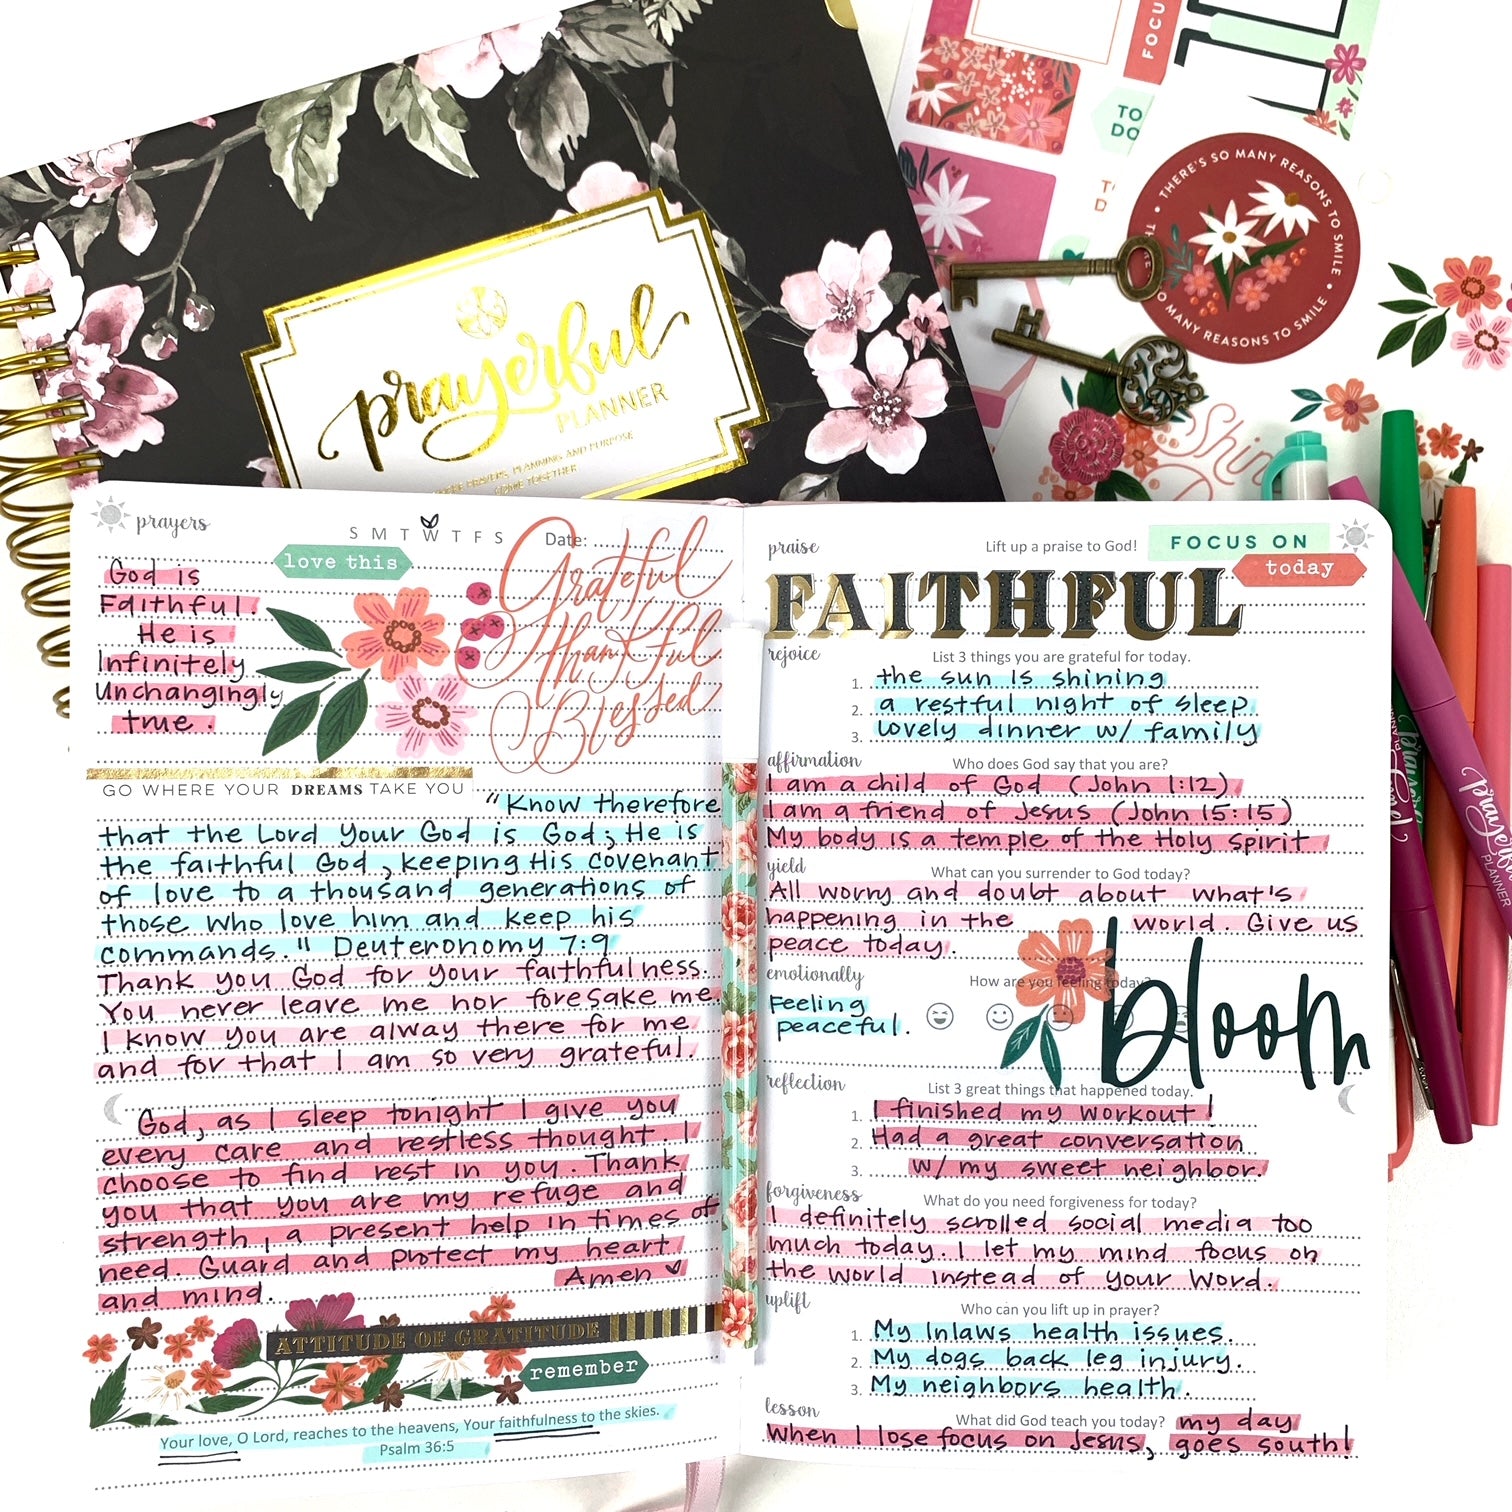 prayerful
PLANNER
FOCU
TO
DO
THERE'S SO MANY REASONS TO SMILE
SO MANY REASONS TO SMILE
Shin
prayers
S M T W T F S
Date:
love this
God is
Faithful.
He is
Infinitely
Unchangingly
true.
Grateful
thankful
Blessed
GO WHERE YOUR DREAMS TAKE YOU
"Know therefore
that the Lord your God is God; He is
the faithful God, keeping His covenant
of love to a thousand generations of
those who love him and keep his
commands." Deuteronomy 7:9
Thank you God for your faithfulness.
You never leave me nor foresake me.
I know you are alway there for me
and for that I am so very grateful.
God, as I sleep tonight I give you
every care and restless thought. I
choose to find rest in you. Thank
you that you are my refuge and
strength, a present help in times of
need. Guard and protect my heart
and mind. Amen
ATTITUDE OF GRATITUDE
remember
Your love, O Lord, reaches to the heavens, Your faithfulness to the skies.
Psalm 36:5
praise
Lift up a praise to God!
FOCUS ON
today
FAITHFUL
rejoice
List 3 things you are grateful for today.
1. the sun is shining
2. a restful night of sleep.
3. lovely dinner w/ family
affirmation
Who does God say that you are?
I am a child of God (John 1:12)
I am a friend of Jesus (John 15:15)
My body is a temple of the Holy Spirit
yield
What can you surrender to God today?
All worry and doubt about what's
happening in the world. Give us
peace today.
emotionally
How are you feeling today?
Feeling
peaceful.
bloom
reflection
List 3 great things that happened today.
1. I finished my workout!
2. Had a great conversation
3. w/ my sweet neighbor.
forgiveness
What do you need forgiveness for today?
I definitely scrolled social media too
much today. I let my mind focus on
the world instead of your Word.
uplift
Who can you lift up in prayer?
1. My Inlaws health issues.
2. My dogs back leg injury.
3. My neighbors health.
lesson
What did God teach you today? my day
When I lose focus on Jesus, goes south!
prayerful
PLANNER